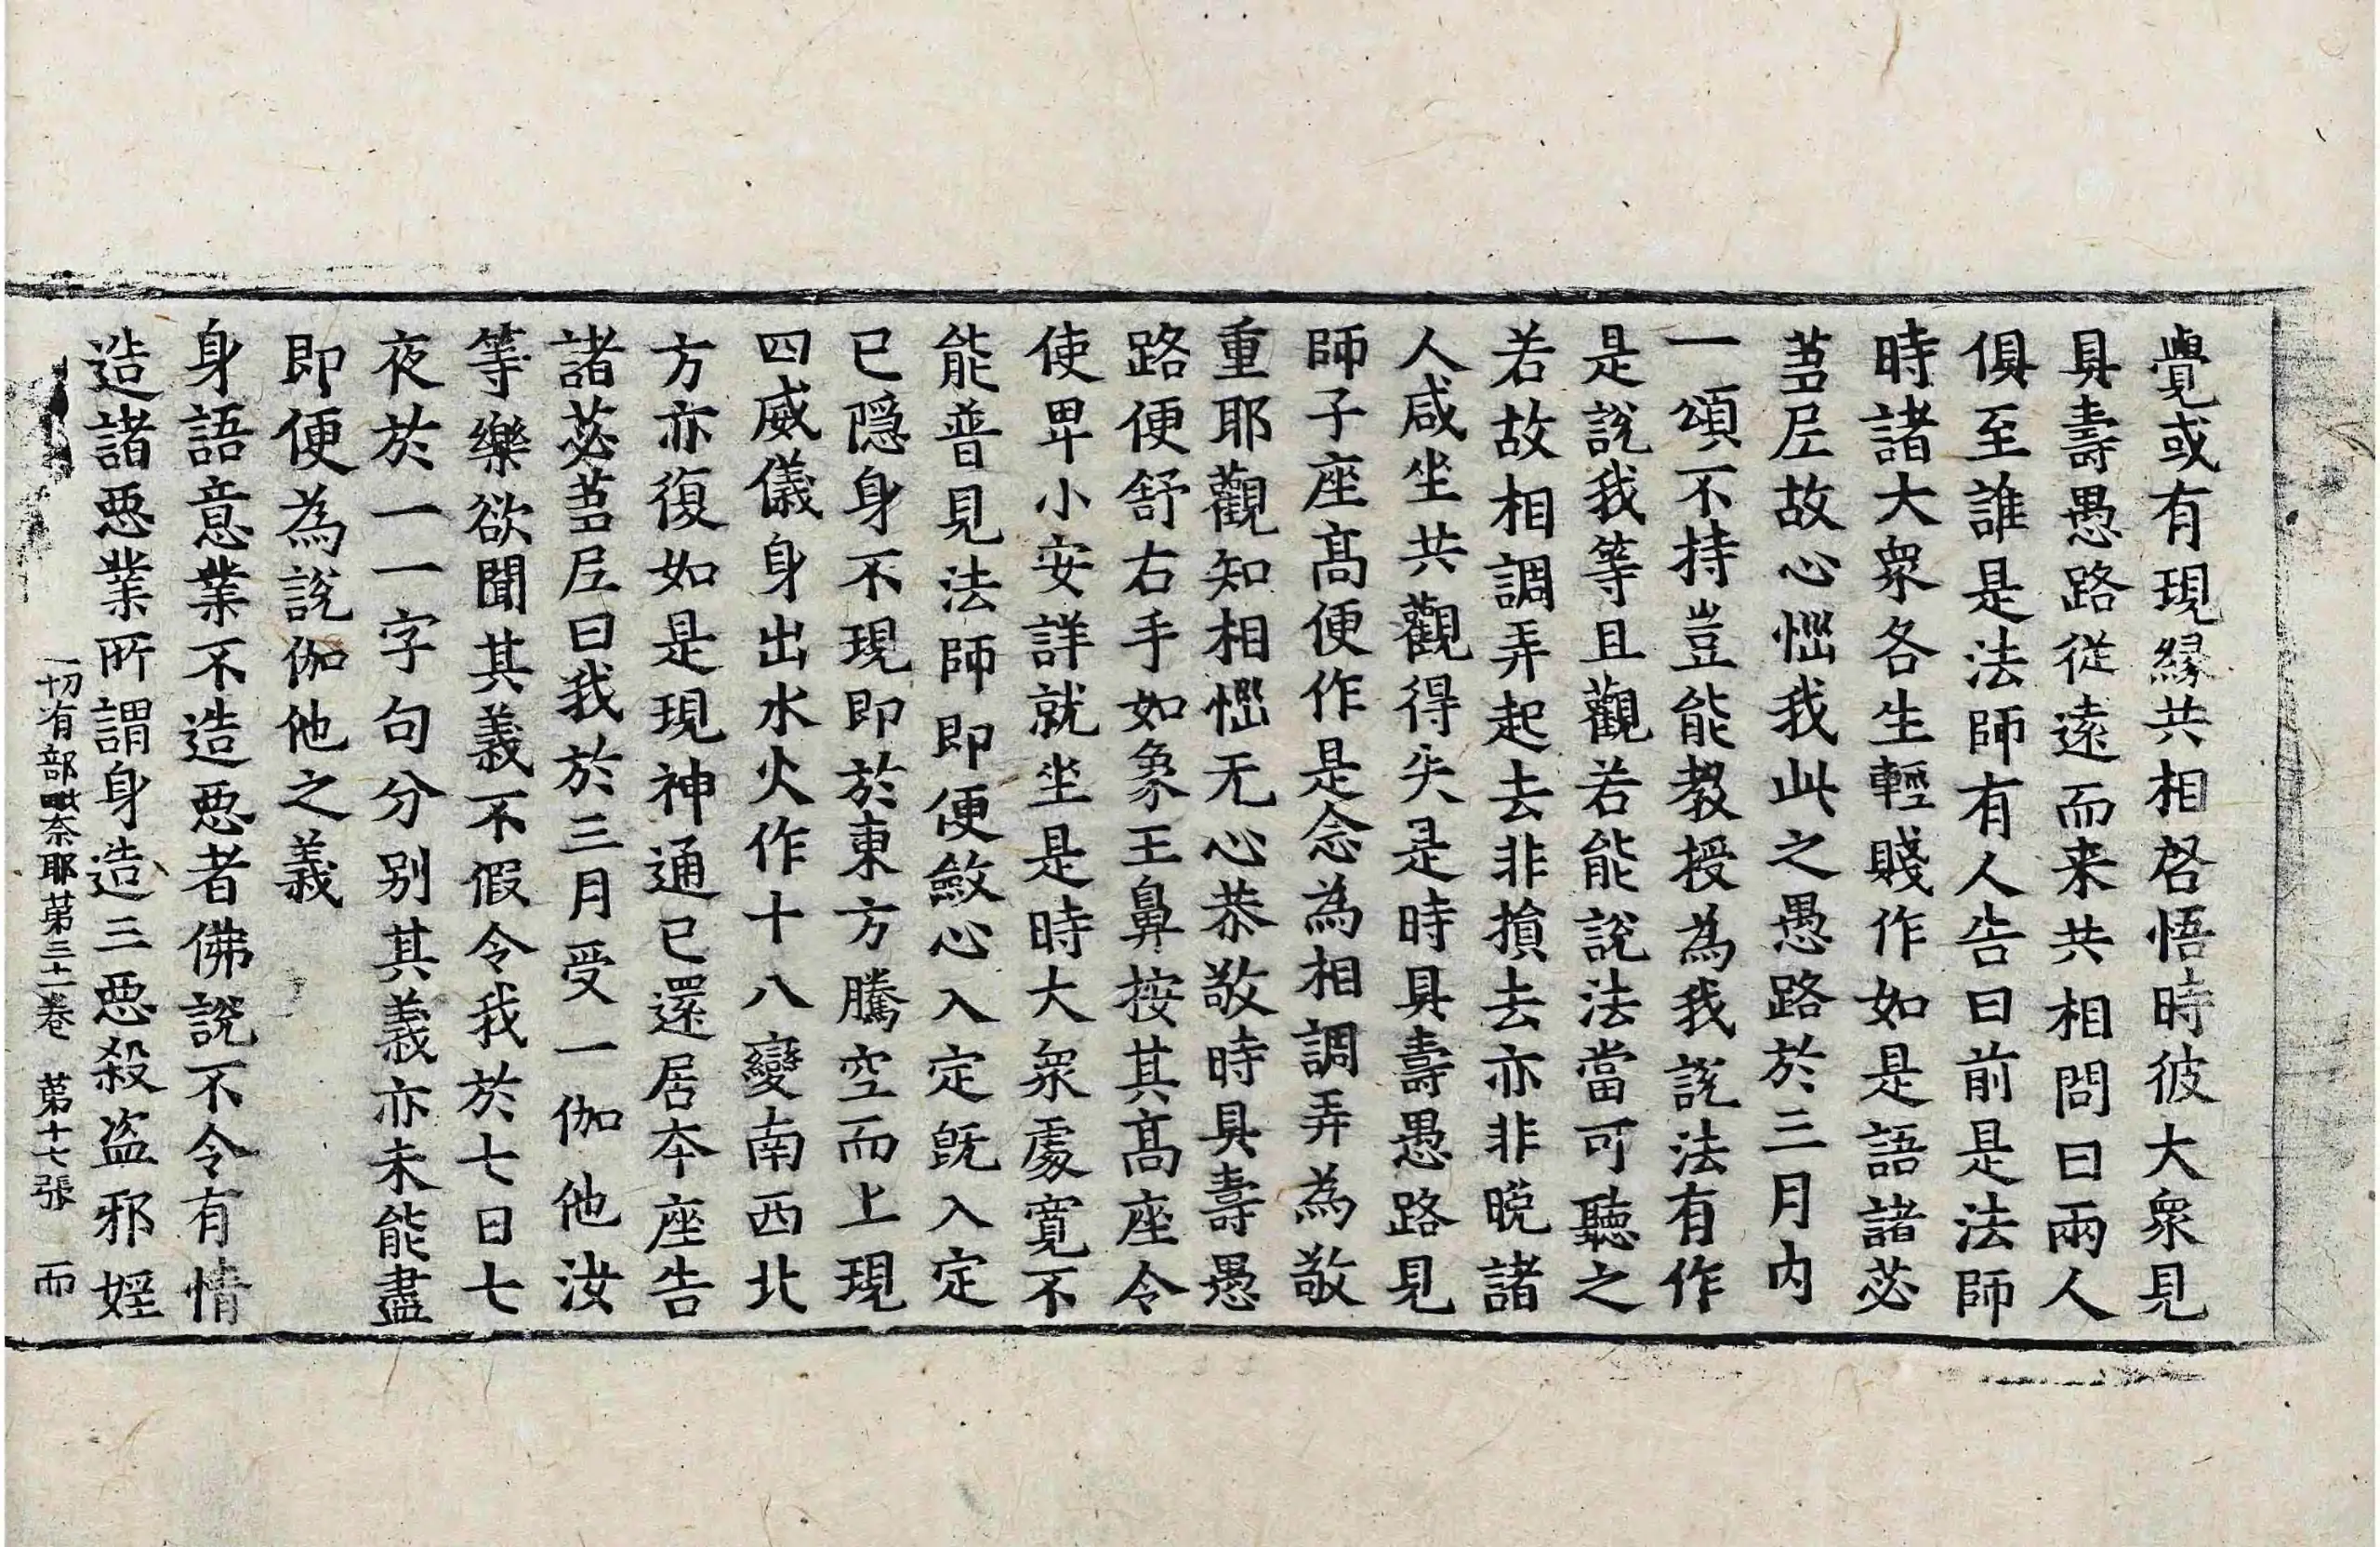 覺或有現緣共相啓悟時彼大衆見
具壽愚路從遠而来共相問曰兩人
俱至誰是法師有人告曰前是法師
時諸大衆各生輕賤作如是語諸苾
芻尼故心惱我此之愚路於三月內
一頌不持豈能教授為我說法有作
是說我等且觀若能說法當可聽之
若故相調弄起去非損去亦非晚諸
人咸坐共觀得失是時具壽愚路見
師子座髙便作是念為相調弄為敬
重耶觀知相惱无心恭敬時具壽愚
路便舒右手如象王鼻按其髙座令
使卑小安詳就坐是時大衆處寬不
能普見法師即便斂心入定旣入定
已隱身不現即於東方騰空而上現
四威儀身出水火作十八變南西北
方亦復如是現神通已還居本座告
諸苾芻尼曰我於三月受一伽他汝
等樂欲聞其義不假令我於七日七
夜於一一字句分别其義亦未能盡
即便為說伽他之義
身語意業不造惡者佛說不令有情
造諸惡業所謂身造三惡殺盗邪婬
一切有部毗奈耶第三十一卷 第十七張 而